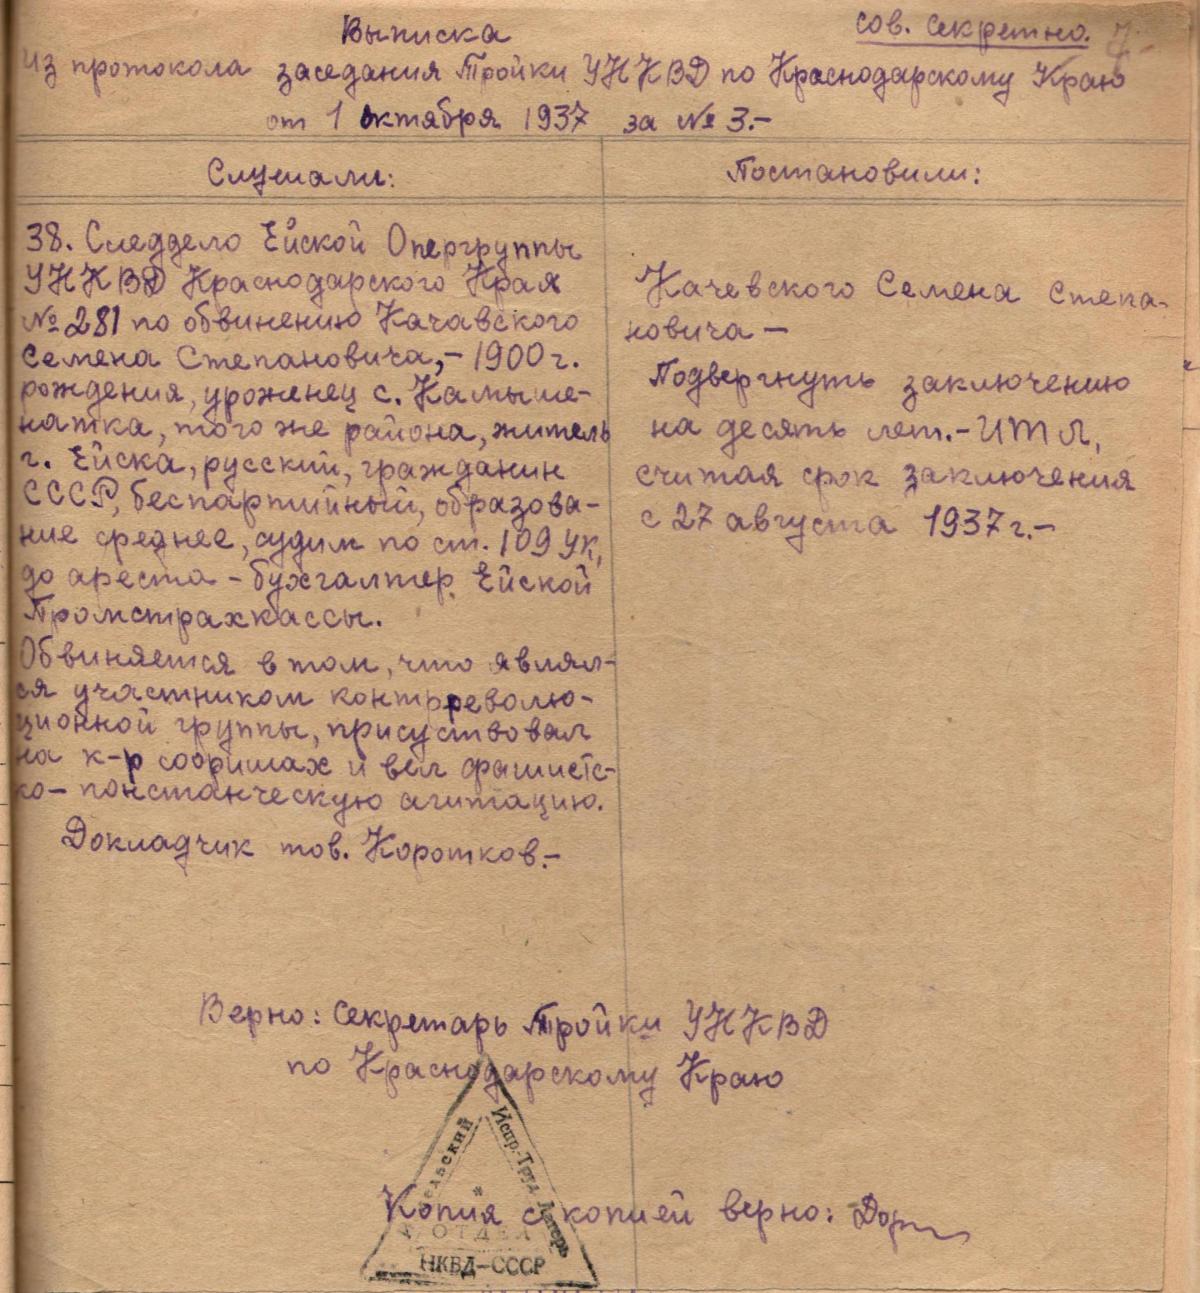 Выписка
Сов. Секретно. 7
из протокола заседания Тройки УНКВД по Краснодарскому Краю
от 1 октября 1937 за № 3.-
Слушали:
Постановили:
38. Следдело Ейской Опергруппы
УНКВД Краснодарского Края
№ 281 по обвинению Качавского
Семена Степановича,- 1900 г.
рождения, уроженец с. Камыше-
натка, того же района, житель
г. Ейска, русский, гражданин
СССР, беспартийный, образова-
ние среднее, судим по ст. 109 УК,
до ареста - бухгалтер Ейской
Промстрахкассы.
Обвиняется в том, что являл-
ся участником контрреволю-
ционной группы, присуствовал
на к-р сборищах и вел фашистс-
ко- агитацию.
Докладчик тов. Коротков.-
Качевского Семена Степа-
новича -
Подвергнуть заключению
на десять лет.- ИТЛ,
считая срок заключения
с 27 августа 1937 г.-
Верно: Секретарь Тройки УНКВД
по Краснодарскому Краю
Испр.-Труд. Лагерь
ОТДЕЛ
НКВД-СССР
Копия с копией верно: